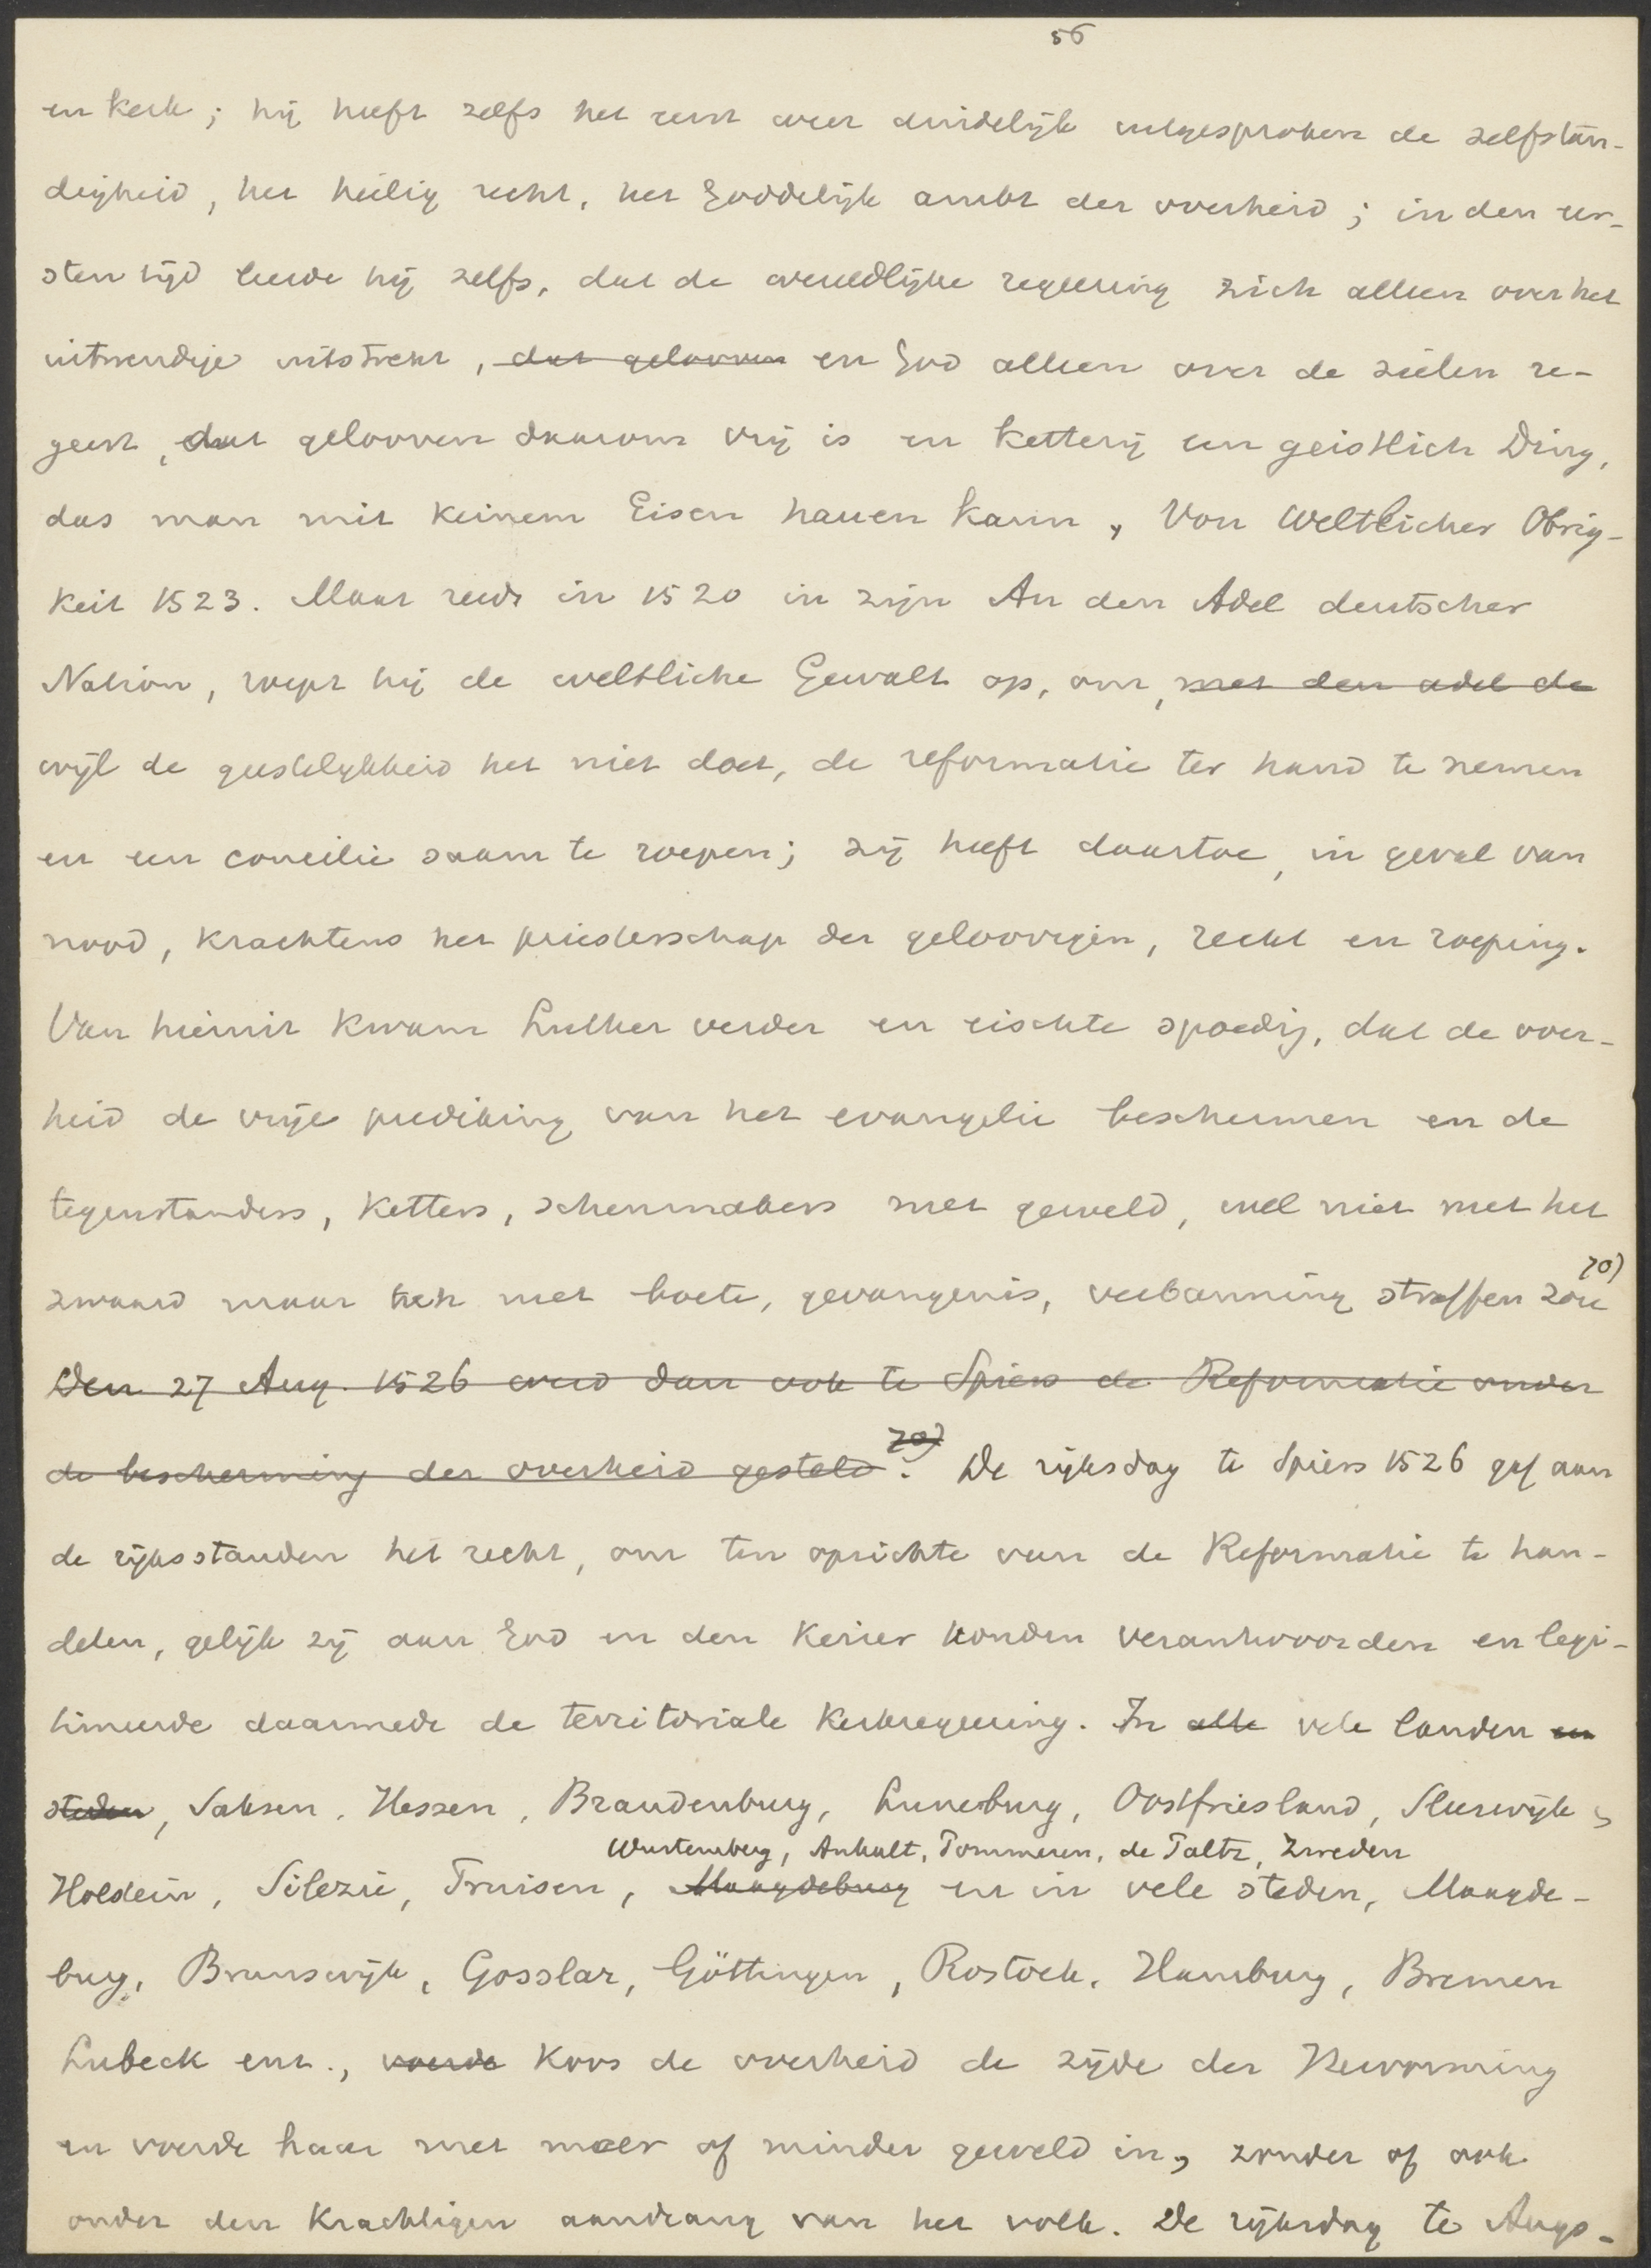 56
en kerk; hij heeft zelfs het eerst weer duidelijk uitgesproken de zelfstan-
digheid, het heilig recht, het Goddelijk ambt der overheid; in den eer-
sten tijd leerde hij zelfs, dat de wereldlijke regeering zich alleen over het
uitwendige uitstrekt, dat gelooven en God alleen over de zielen re-
geert, dat gelooven daarom vrij is en ketterij een geistlich Ding,
das man mit keinem Eisen hauen kann, Von Weltlicher Obrig-
keit 1523. Maar reeds in 1520 in zijn An den Adel deutscher
Nation, roept hij de weltliche Gewalt op, om, met den adel de
wijl de geestelijkheid het niet doet, de reformatie ter hand te nemen
en een concilie saam te roepen; zij heeft daartoe, in geval van
nood, krachtens het priesterschap der geloovigen, recht en roeping.
Van hieruit kwam Luther verder en eischte spoedig, dat de over-
heid de vrije prediking van het evangelie beschermen en de
tegenstanders, ketters, scheurmakers met geweld, wel niet met het
zwaard maar toch met boete, gevangenis, verbanning straffen zou 70)
Den 27 Aug. 1526 werd dan ook te Spiers de Reformatie onder
de bescherming der overheid gesteld 70). De rijksdag te Spiers 1526 gaf aan
de rijksstanden het recht, om ten opzichte van de Reformatie te han-
delen, gelijk zij aan God en den Keizer konden verantwoorden en legi-
timeerde daarmede de territoriale kerkregeering. In alle vele landen en
steden, Saksen, Hessen, Brandenburg, Luneburg, Oostfriesland, Sleeswijk,
Wurtemberg, Anhalt, Pommeren, de Paltz, Zweden
Holstein, Silezie, Pruisen, Maagdeburg en in vele steden, Maagde-
burg, Brunswijk, Gosslar, Göttingen, Rostock, Hamburg, Bremen
Lubeck enz., voerde koos de overheid de zijde der Hervorming
en voerde haar met meer of minder geweld in, zonder of ook
onder den krachtigen aandrang van het volk. De rijksdag te Augs-